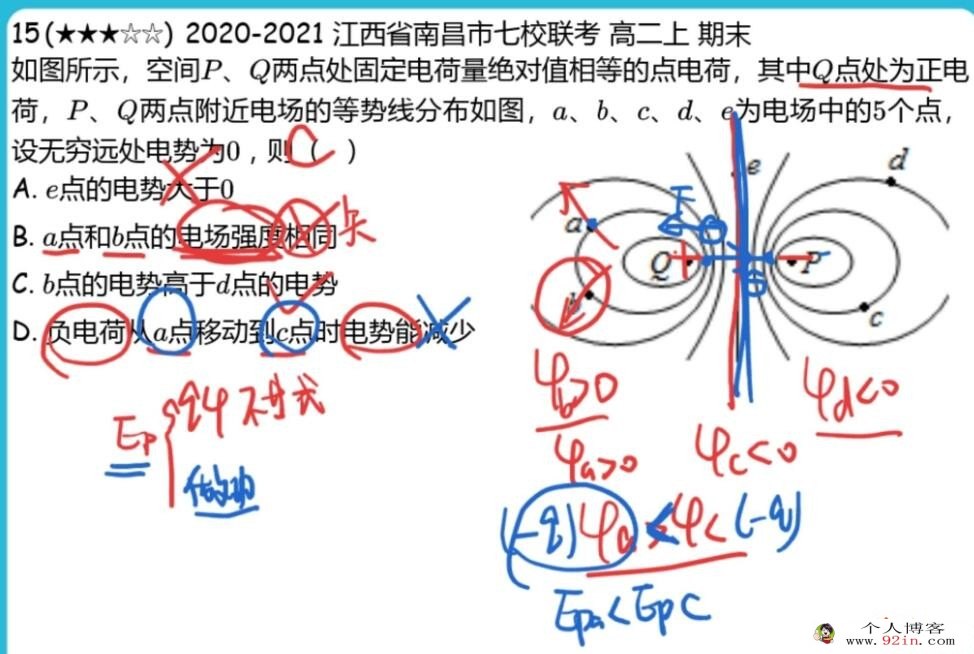 15(★★★☆☆) 2020-2021 江西省南昌市七校联考 高二上 期末
如图所示，空间P、Q两点处固定电荷量绝对值相等的点电荷，其中Q点处为正电
荷，P、Q两点附近电场的等势线分布如图，a、b、c、d、e为电场中的5个点，
设无穷远处电势为0，则（ C ）
A. e点的电势大于0
B. a点和b点的电场强度相同
C. b点的电势高于d点的电势
D. 负电荷从a点移动到c点时电势能减少
e
d
a
F
Q
P
b
c
Ep
qφ
做功
φb>0
φd<0
φa>0
φc<0
(-q)φa < φc (-q)
Epa<Epc
个人博客
www.92in.com